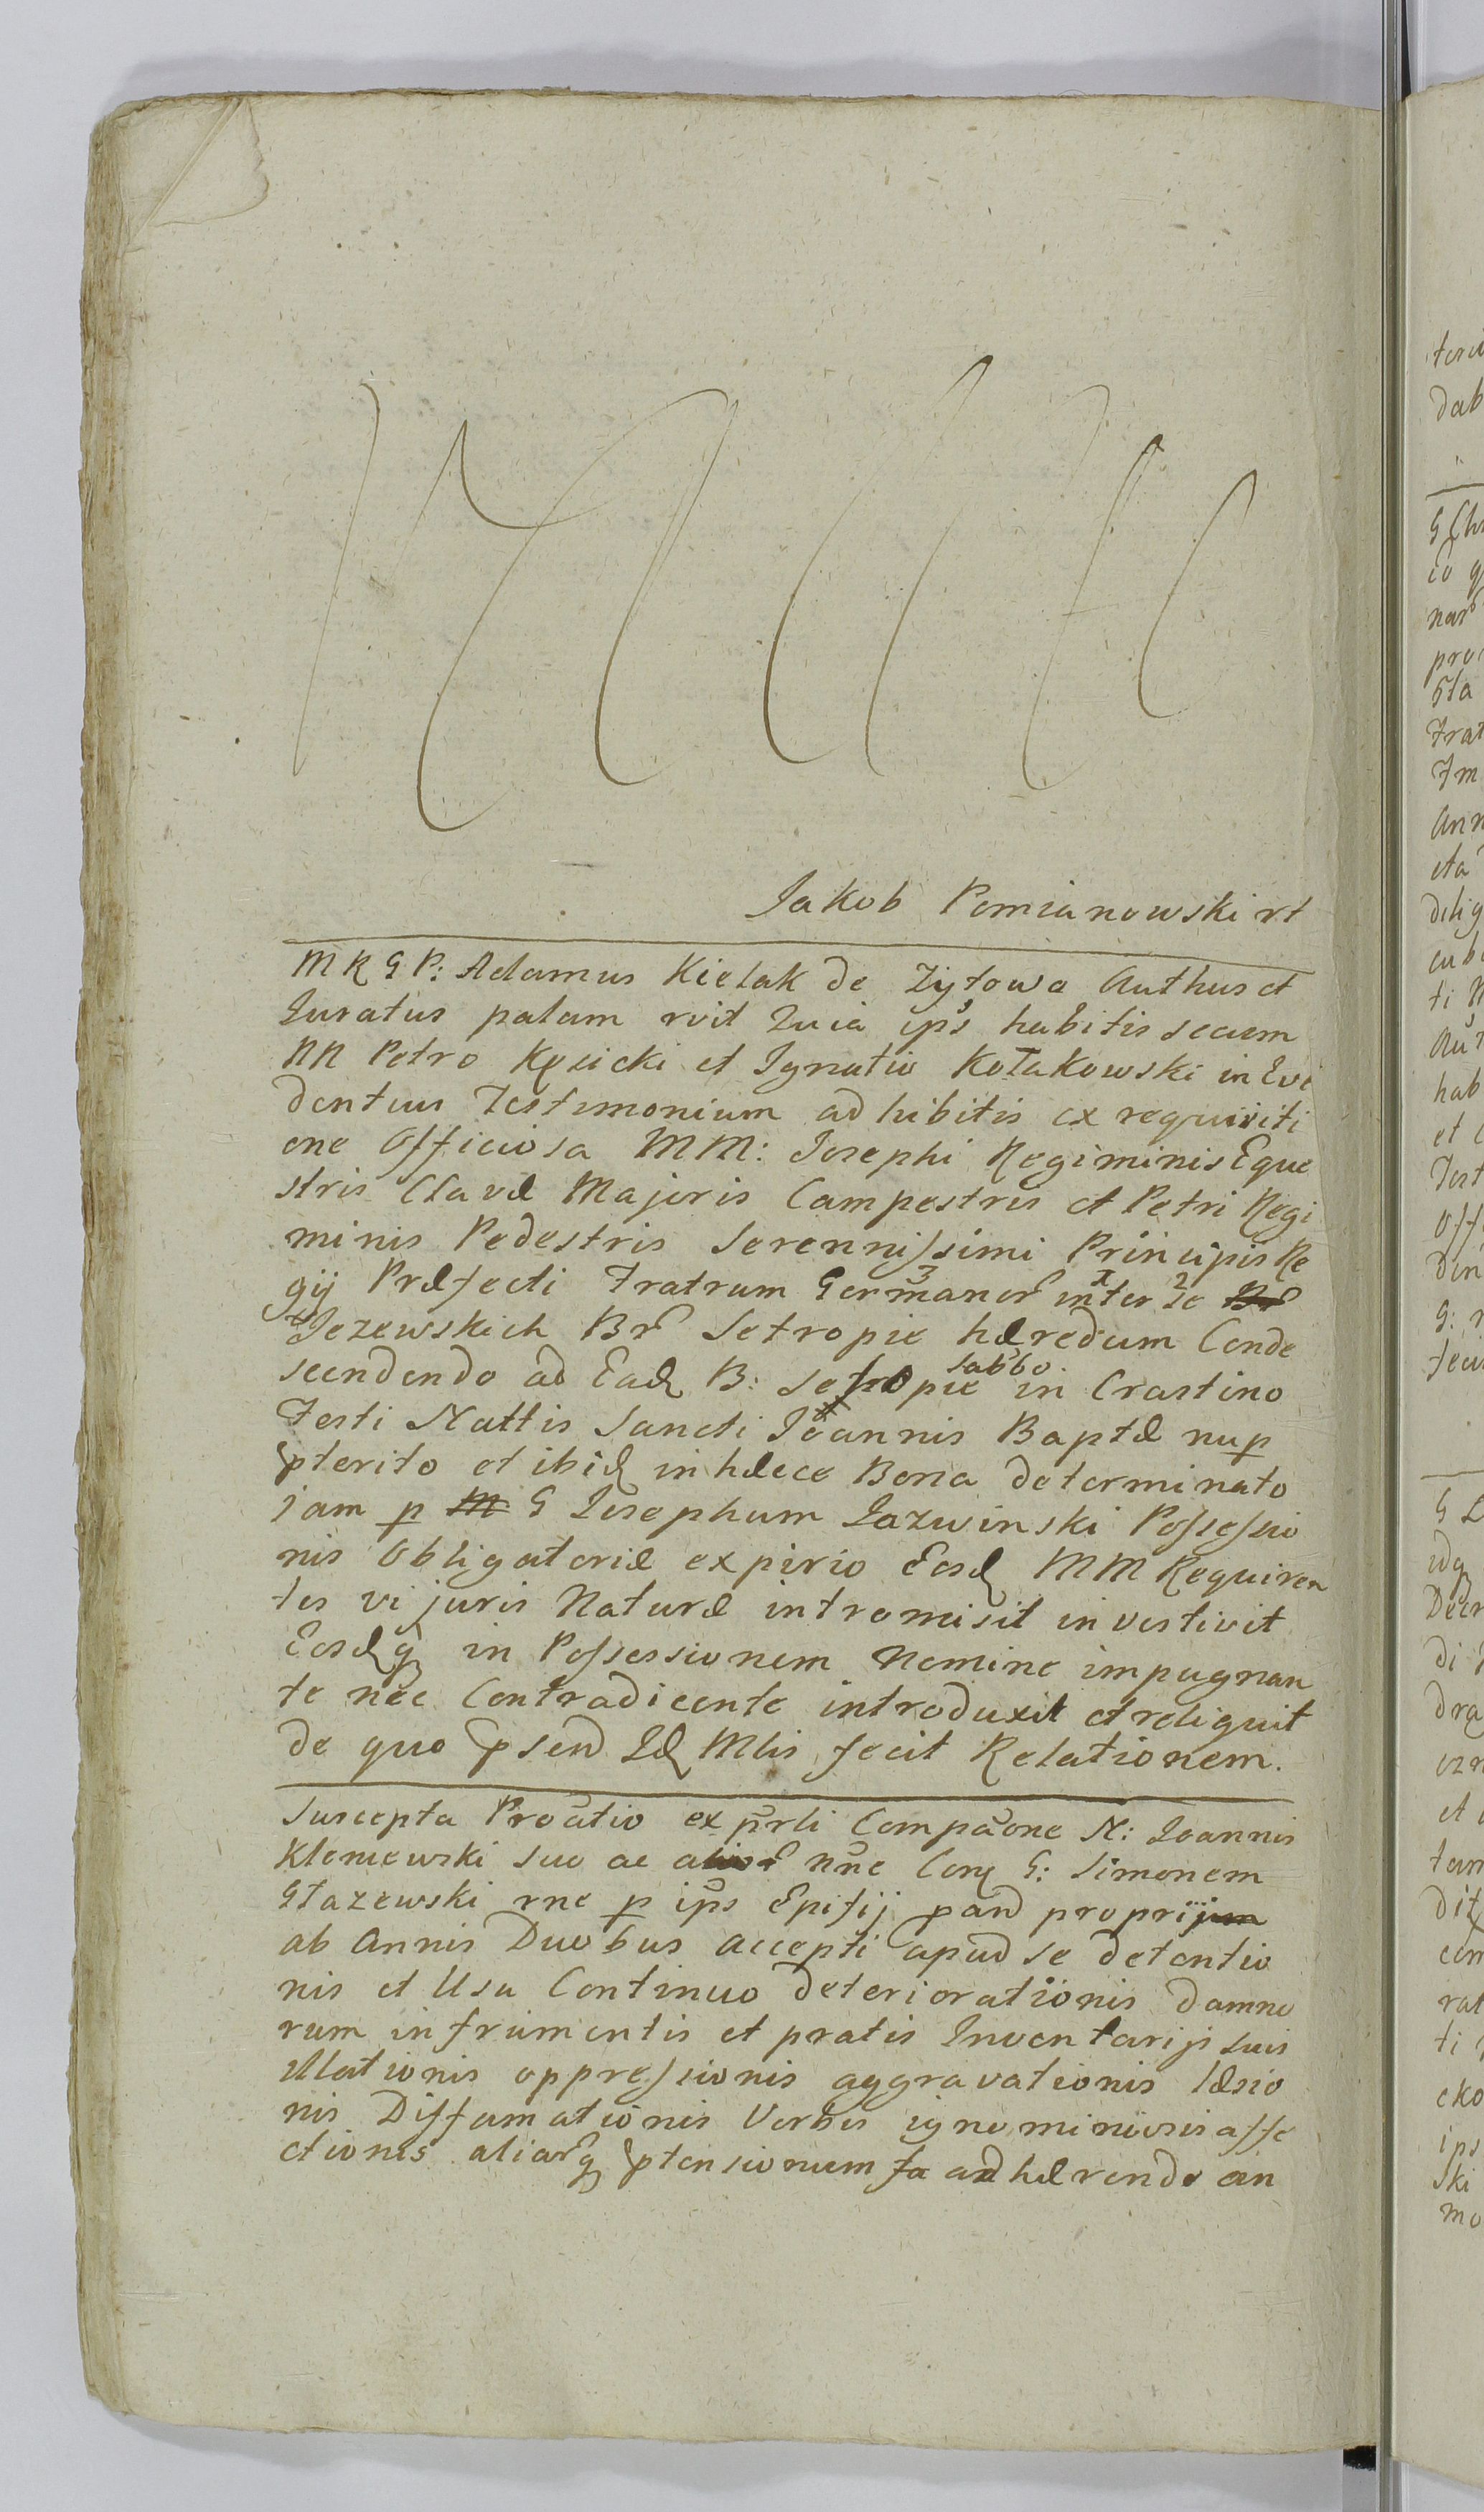 Jakob Pomianowski rt
MRGP: Adamus Kielak de Zytowa Authus et
Juratus palam rvit Quia ips habitis secum
NN Petro Kęsicki et Ignatio Kołakowski in Evi
dentius Testimonium adhibitis ex requisiti
one Officiosa MM: Josephi Regiminis Eque
stris Clavæ Majoris Campestris et Petri Regi
minis Pedestris Serennissimi Principis Re
gij Præfecti Fratrum Germanor inter se
Jezewskich Br Setropie hæredum Conde
scendendo ad Ead B: Setropie sabbo in Crastino
Festi Nattis Sancti Joannis Baptæ nup
pterito et ibid in hæce Bona determinato
jam p G Josephum Jazwinski Possessio
nis Obligatoriæ expirio Eosd MM Requiren
tes vi juris Naturæ intromisit investivit
Eosdq in Possessionem Nemine impugnan
te nec Contradicente introduxit et reliquit
de quo psend Id Mlis fecit Relationem.
Suscepta Provatio ex pnrli Compaone N: Joannis
Kleniewski suo ac nne Conx G: Simonem
Głazewski rne p ips Epifij pand proprij
ab Annis Duobus accepti apud se detentio
nis et Usu Continuo deteriorationis damno
rum in frumentis et pratis Inventarijs suis
illationis oppressionis aggravationis læsio
nis Diffamationis Verbis ignominiosis affe
ctionis aliarq ptensionum fa adhærendo an